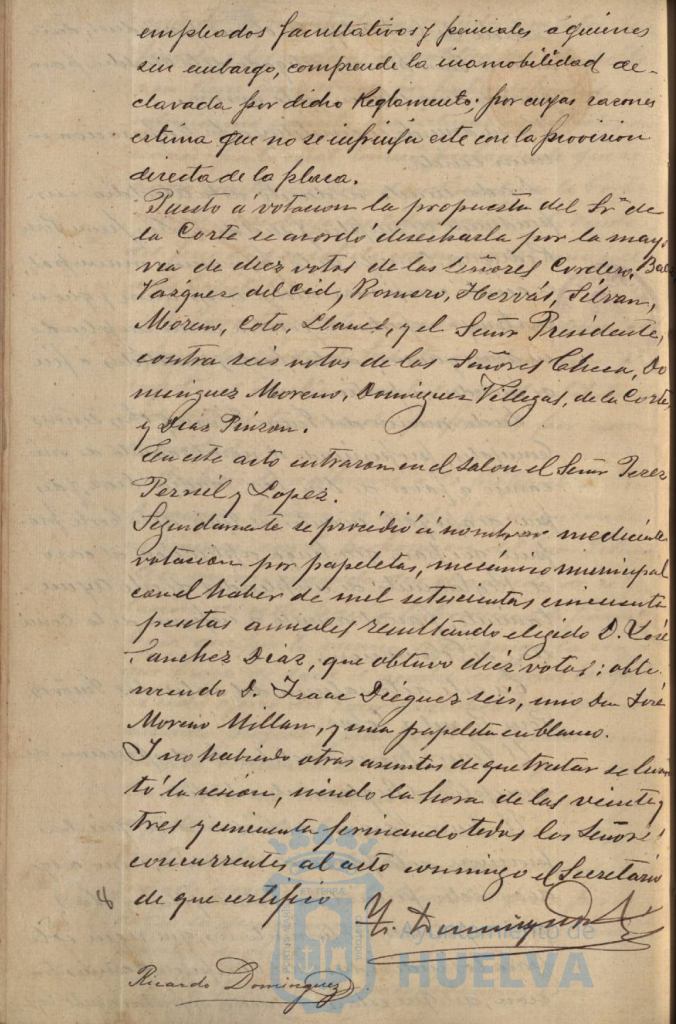 empleados facultativos y periciales á quienes
sin embargo, comprende la inamobilidad de-
clarada por dicho Reglamento; por cuyas razones
estima que no se infrinja este con la provision
directa de la plaza.
Puesto á votacion la propuesta del Sr. de
la Corte se acordó desecharla por la mayo
ria de diez votos de los Señores Cordero,
Vazquez del Cid, Romero, Hervás, Silvan,
Moreno, Coto, Llanes, y el Señor Presidente,
contra seis votos de los Señores Checa, Do
minguez Moreno, Dominguez Villegas, de la Corte,
y Diaz Pinzon.
En este acto entraron en el salon el Señor Perez
Pernil y Lopez.
Seguidamente se procedió á nombrar mediante
votacion por papeletas, mecánico municipal
con el haber de mil setecientas cincuenta
pesetas anuales resultando elegido D. José
Sanchez Diaz, que obtuvo diez votos; obte
niendo D. Isaac Diéguez seis, uno Don José
Moreno Millan, y una papeleta en blanco.
Y no habiendo otros asuntos de que tratar se levan
tó la sesión, siendo la hora de las veinte y
tres y cincuenta firmando todos los Señores
concurrentes al acto conmigo el Secretario
de que certifico
8
Dominguez
Ricardo Dominguez
Ayuntamiento de
HUELVA